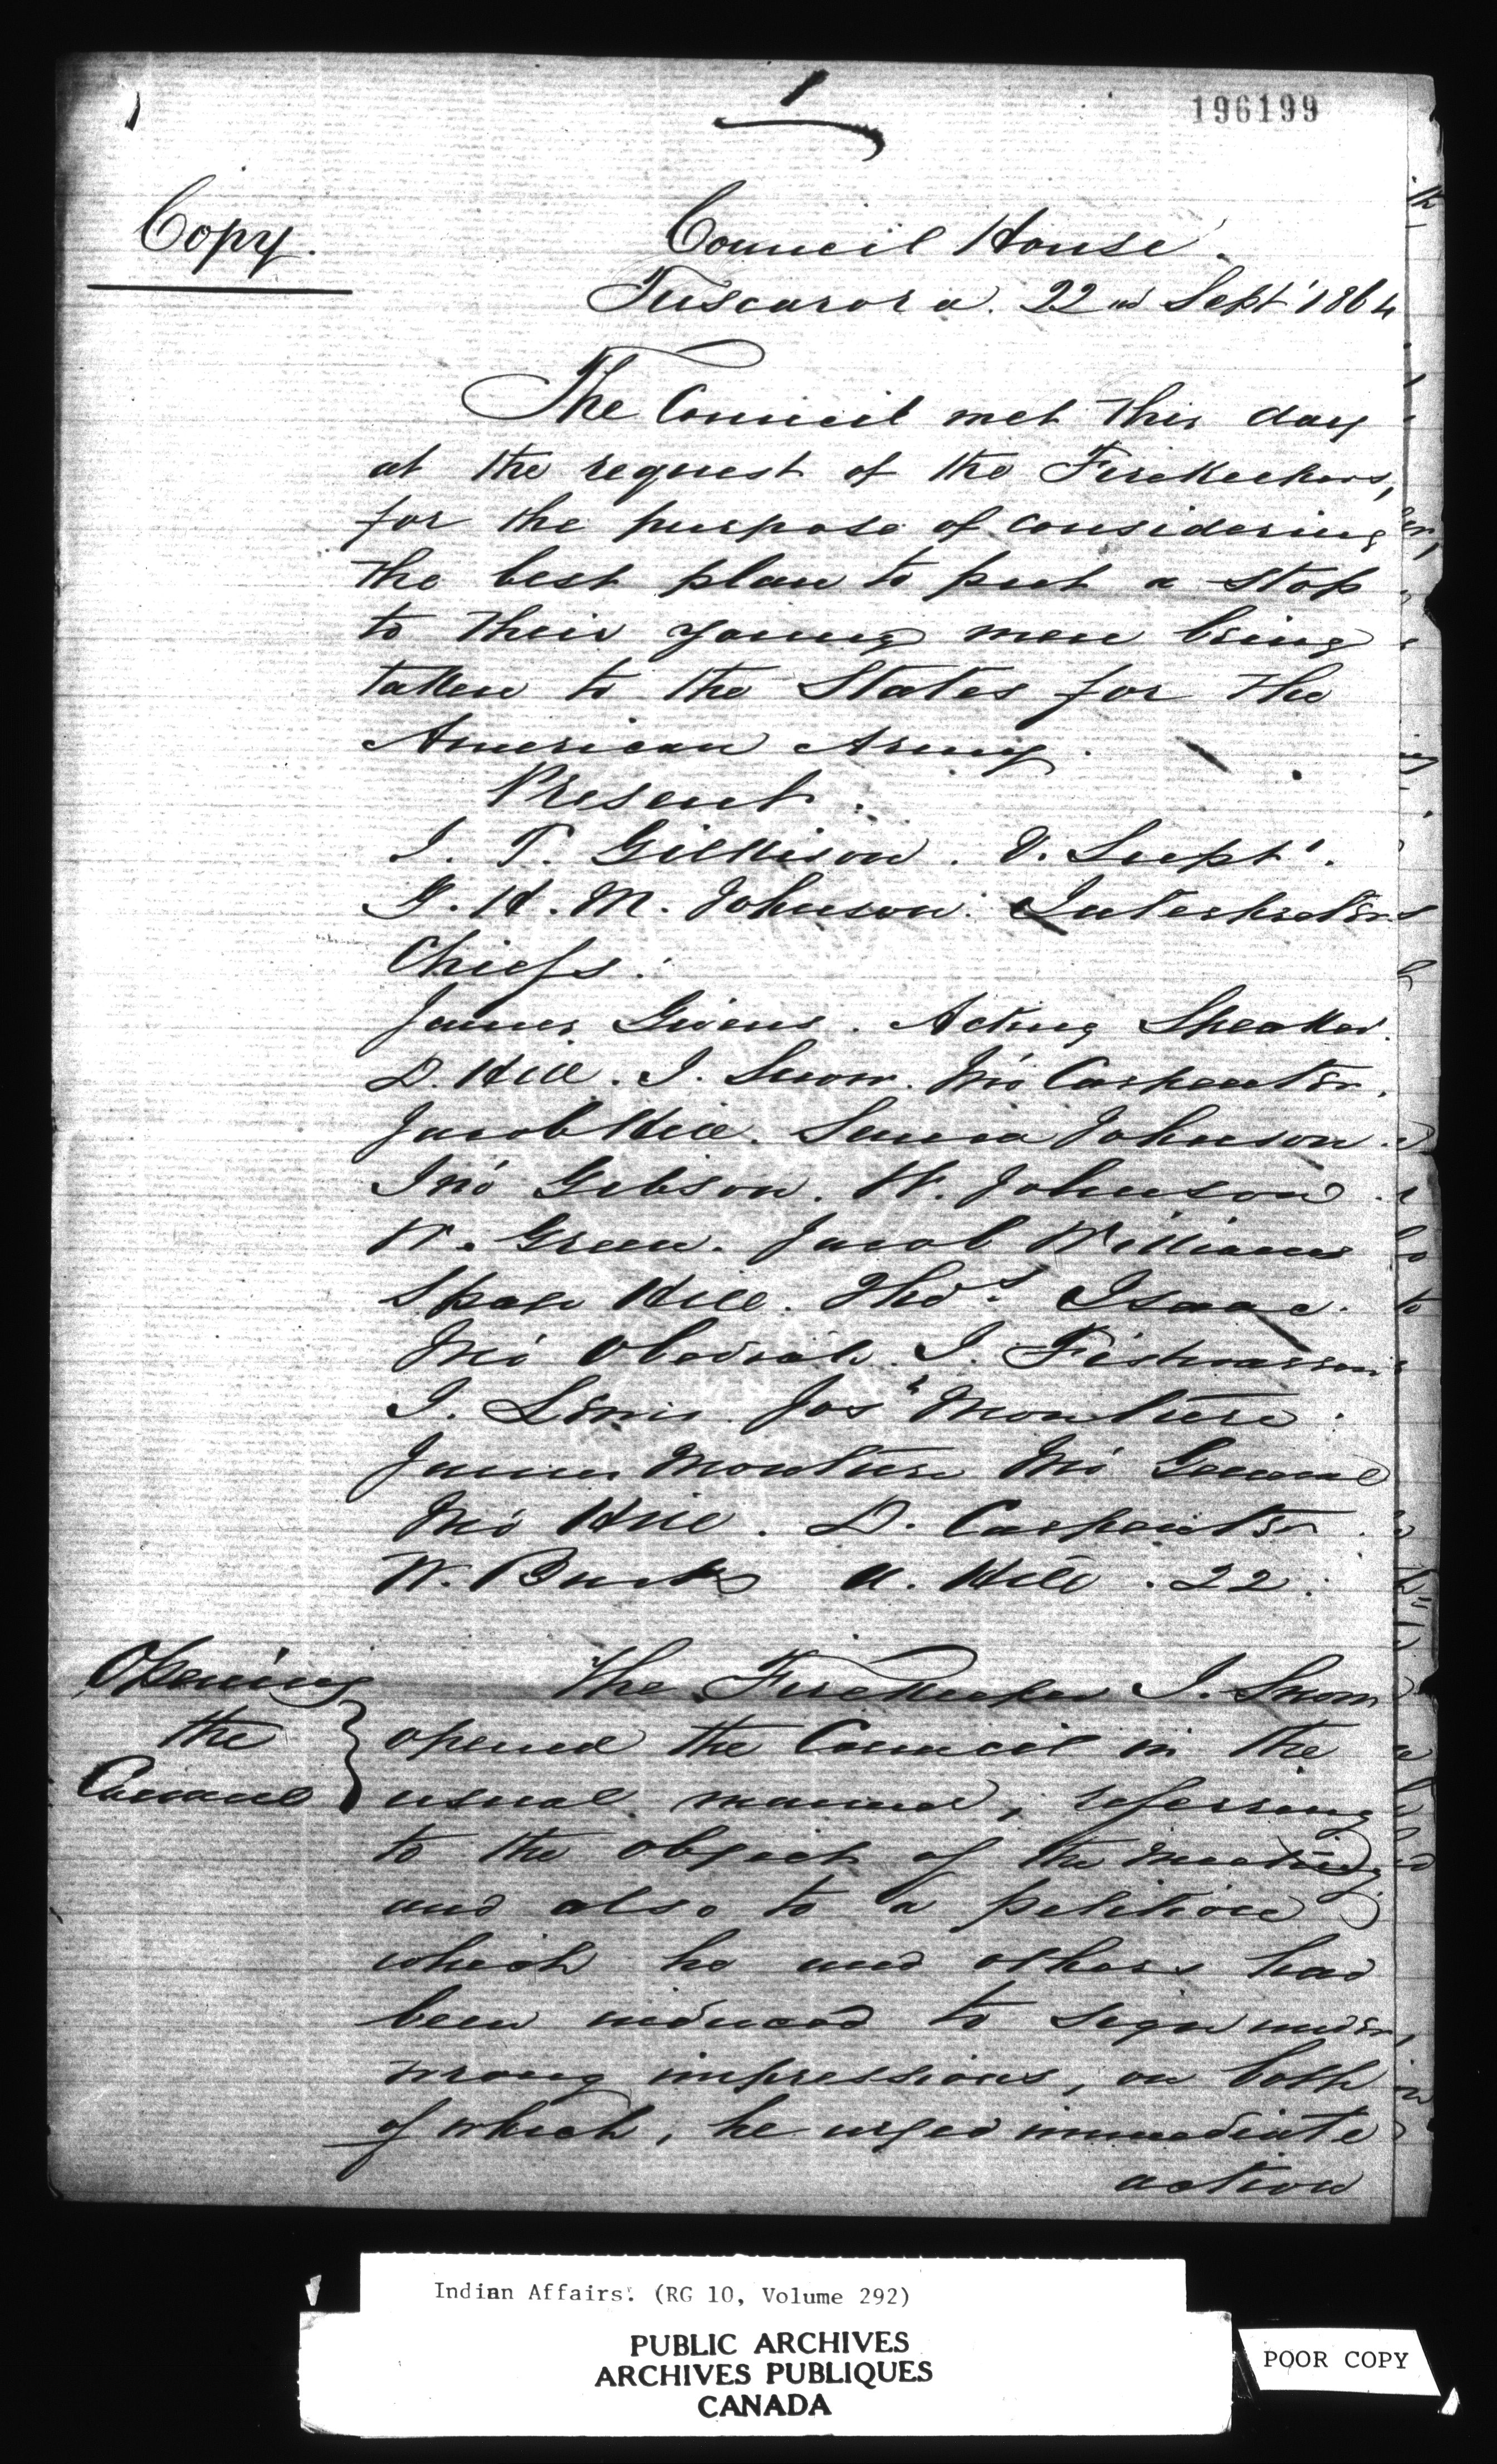 1
196199
Copy.
Council House.
Tuscarora. 22nd Sept' 1864
The Council met this day
at the request of the Firekeepers,
for the purpose of considering
the best plan to put a stop
to their young men being
taken to the States for the
American Army.
Present.
J. T. Gilkison. V. Supt'.
G. H. M. Johnson. Interpreter
Chiefs.
James Givens. Acting Speaker.
D. Hill. J. Snow. Jno Carpenter.
Jacob Hill. Johnson.
Jno Gibson. W. Johnson
W. Green. Jacob Williams
Hill. Thos. Isaac.
Jno Obediah. J. Fishcarrier
J. Lewis. Josh Monture.
James Monture Jno General
Jno Hill. D. Carpenter.
W. Bucks A. Hill. 22.
Opening
the
Council
The Firekeeper J. Snow
opened the Council in the
usual manner, referring
to the object of the meeting
and also to a petition
which he and others had
been induced to sign under
wrong impressions, on both
of which, he urged immediate
action
Indian Affairs. (RG 10, Volume 292)
PUBLIC ARCHIVES
ARCHIVES PUBLIQUES
CANADA
POOR COPY